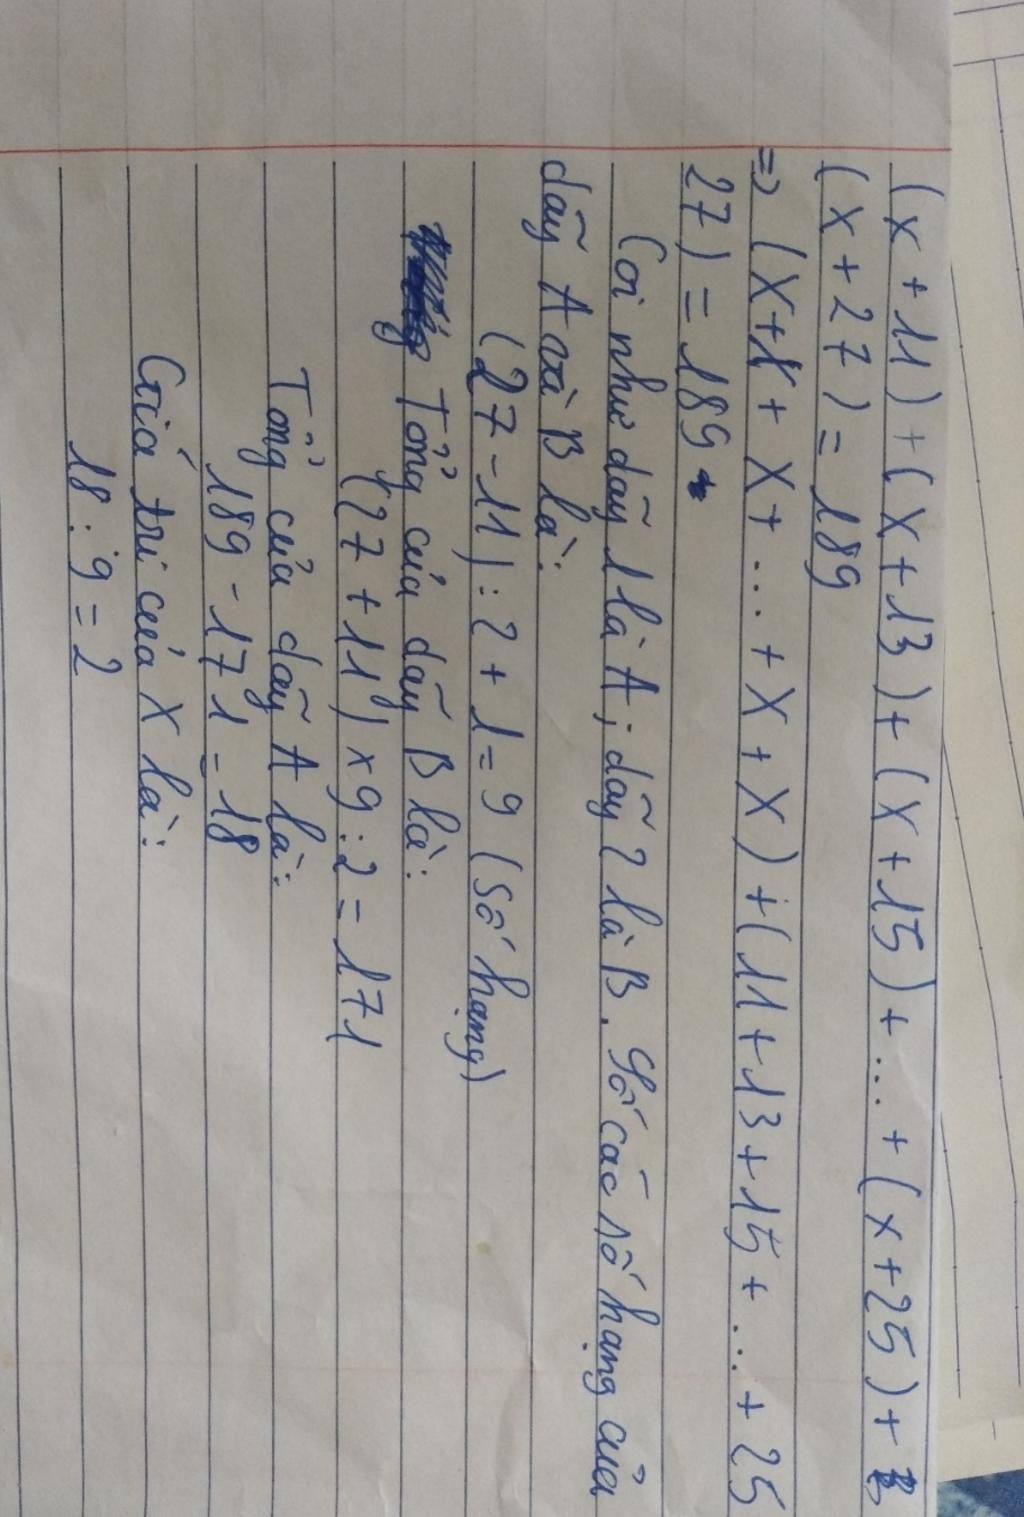 (x + 11) + (x + 13) + (x + 15) + .... + (x + 25) +
(x + 27) = 189
=> (X + X + X + ... + X + X) + (11 + 13 + 15 + ... + 25
27) = 189
Coi như dãy 1 là A; dãy 2 là B. Số các số hạng của
dãy A và B là:
(27 - 11) : 2 + 1 = 9 (số hạng)
Tổng của dãy B là:
(27 + 11) x 9 : 2 = 171
Tổng của dãy A là:
189 - 171 = 18
Giá trị của X là:
18 : 9 = 2